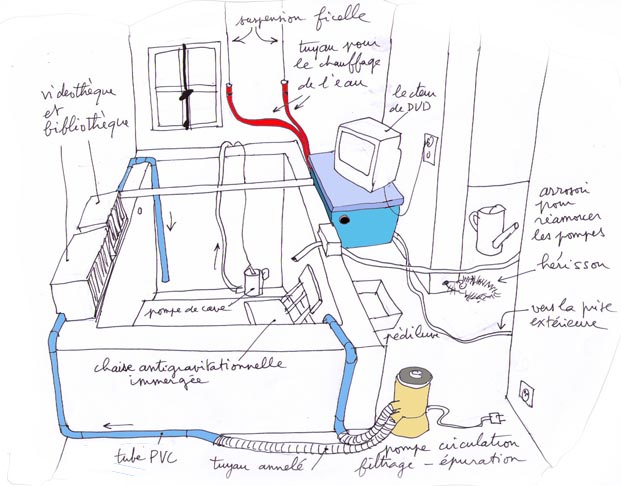 suspension ficelle
tuyau pour
le chauffage
de l'eau
lecteur
de DVD
vidéothèque
et
bibliothèque
arrosoir
pour
réamorcer
les pompes
hérisson
vers la prise
extérieure
pompe de cave
pédiluve
chaise antigravitationnelle
immergée
tube PVC
tuyau annelé
pompe circulation
filtrage - épuration